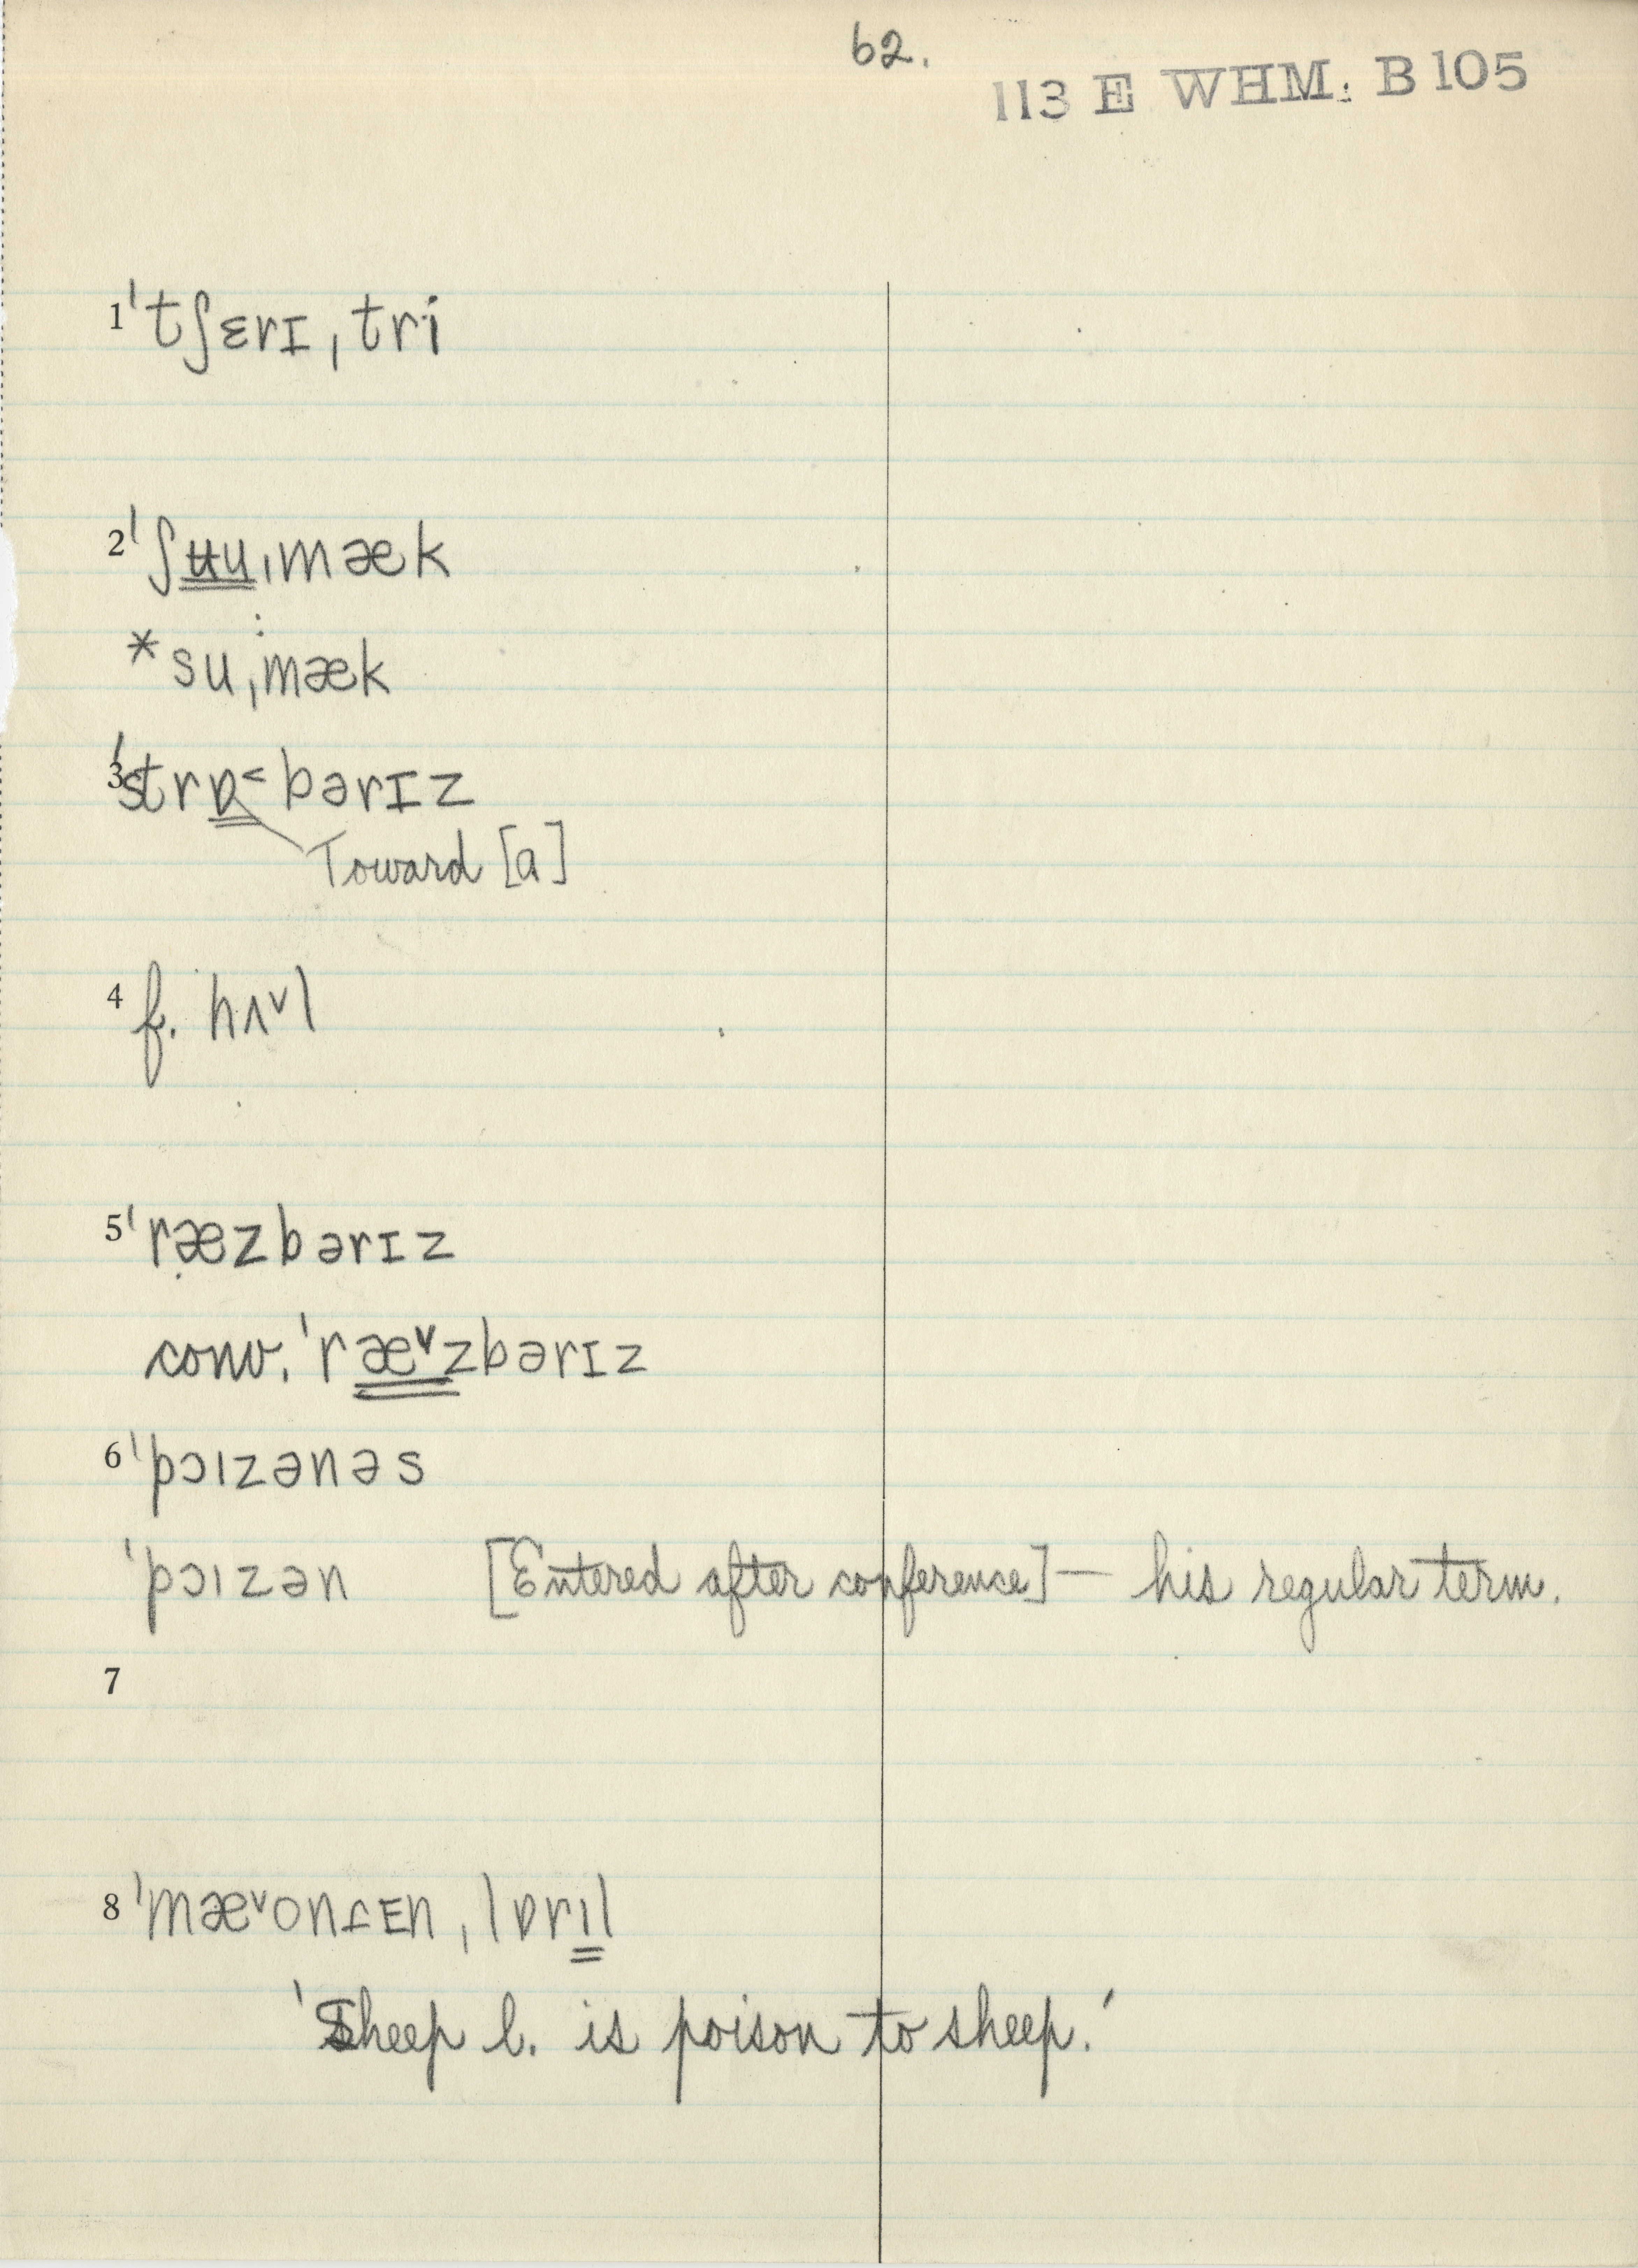 62.
113 E WHM: B 105
1 ˈtʃɛrɪˌtri
2 ˈʃʉuˌmæk
* suˌmæk
3 ˈstrɒ˂bərɪz
Toward [ɑ]
4 f. hʌ˅l
5 ˈræ̣zbərɪz
conv. ˈræ˅zbərɪz
6 ˈpɔɪzənəs
ˈpɔɪzən [Entered after conference] — his regular term.
7
8 ˌlɒrɪl
'Sheep l. is poison to sheep.'